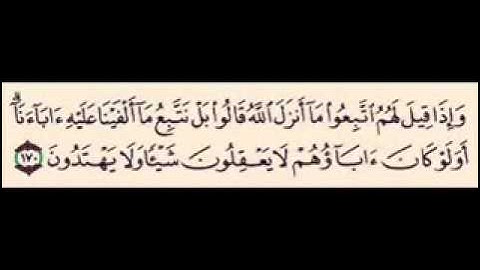 وَإِذَا قِيلَ لَهُمُ ٱتَّبِعُوا۟ مَآ أَنزَلَ ٱللَّهُ قَالُوا۟ بَلْ نَتَّبِعُ مَآ أَلْفَيْنَا عَلَيْهِ ءَابَآءَنَآ ۗ
أَوَلَوْ كَانَ ءَابَآؤُهُمْ لَا يَعْقِلُونَ شَيْـًٔا وَلَا يَهْتَدُونَ ١٧٠